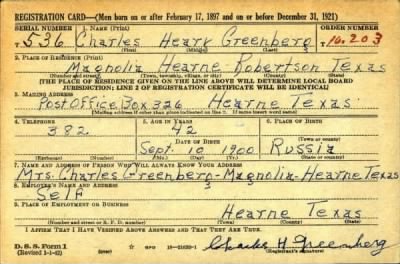 REGISTRATION CARD—(Men born on or after February 17, 1897 and on or before December 31, 1921)
SERIAL NUMBER 1. NAME (Print) ORDER NUMBER
536 Charles Heary Greenberg 10.203
(First) (Middle) (Last)
2. PLACE OF RESIDENCE (Print)
Magnolia Hearne Robertson Texas
(Number and street) (Town, township, village, or city) (County) (State)
[THE PLACE OF RESIDENCE GIVEN ON THE LINE ABOVE WILL DETERMINE LOCAL BOARD
JURISDICTION; LINE 2 OF REGISTRATION CERTIFICATE WILL BE IDENTICAL]
3. MAILING ADDRESS
Post Office Box 326 Hearne Texas
[Mailing address if other than place indicated on line 2. If same insert word same]
4. TELEPHONE 5. AGE IN YEARS 6. PLACE OF BIRTH
382 42
DATE OF BIRTH (Town or county)
Sept. 10 1900 Russia
(Exchange) (Number) (Mo.) (Day) (Yr.) (State or country)
7. NAME AND ADDRESS OF PERSON WHO WILL ALWAYS KNOW YOUR ADDRESS
Mrs. Charles Greenberg - Magnolia - Hearne Texas
8. EMPLOYER'S NAME AND ADDRESS
Self
9. PLACE OF EMPLOYMENT OR BUSINESS
Hearne Texas
(Number and street or R. F. D. number) (Town) (County) (State)
I AFFIRM THAT I HAVE VERIFIED ABOVE ANSWERS AND THAT THEY ARE TRUE.
D. S. S. Form 1
(Revised 1-1-42) GPO 16—21630-1 Charles H Greenberg
(Registrant's signature)